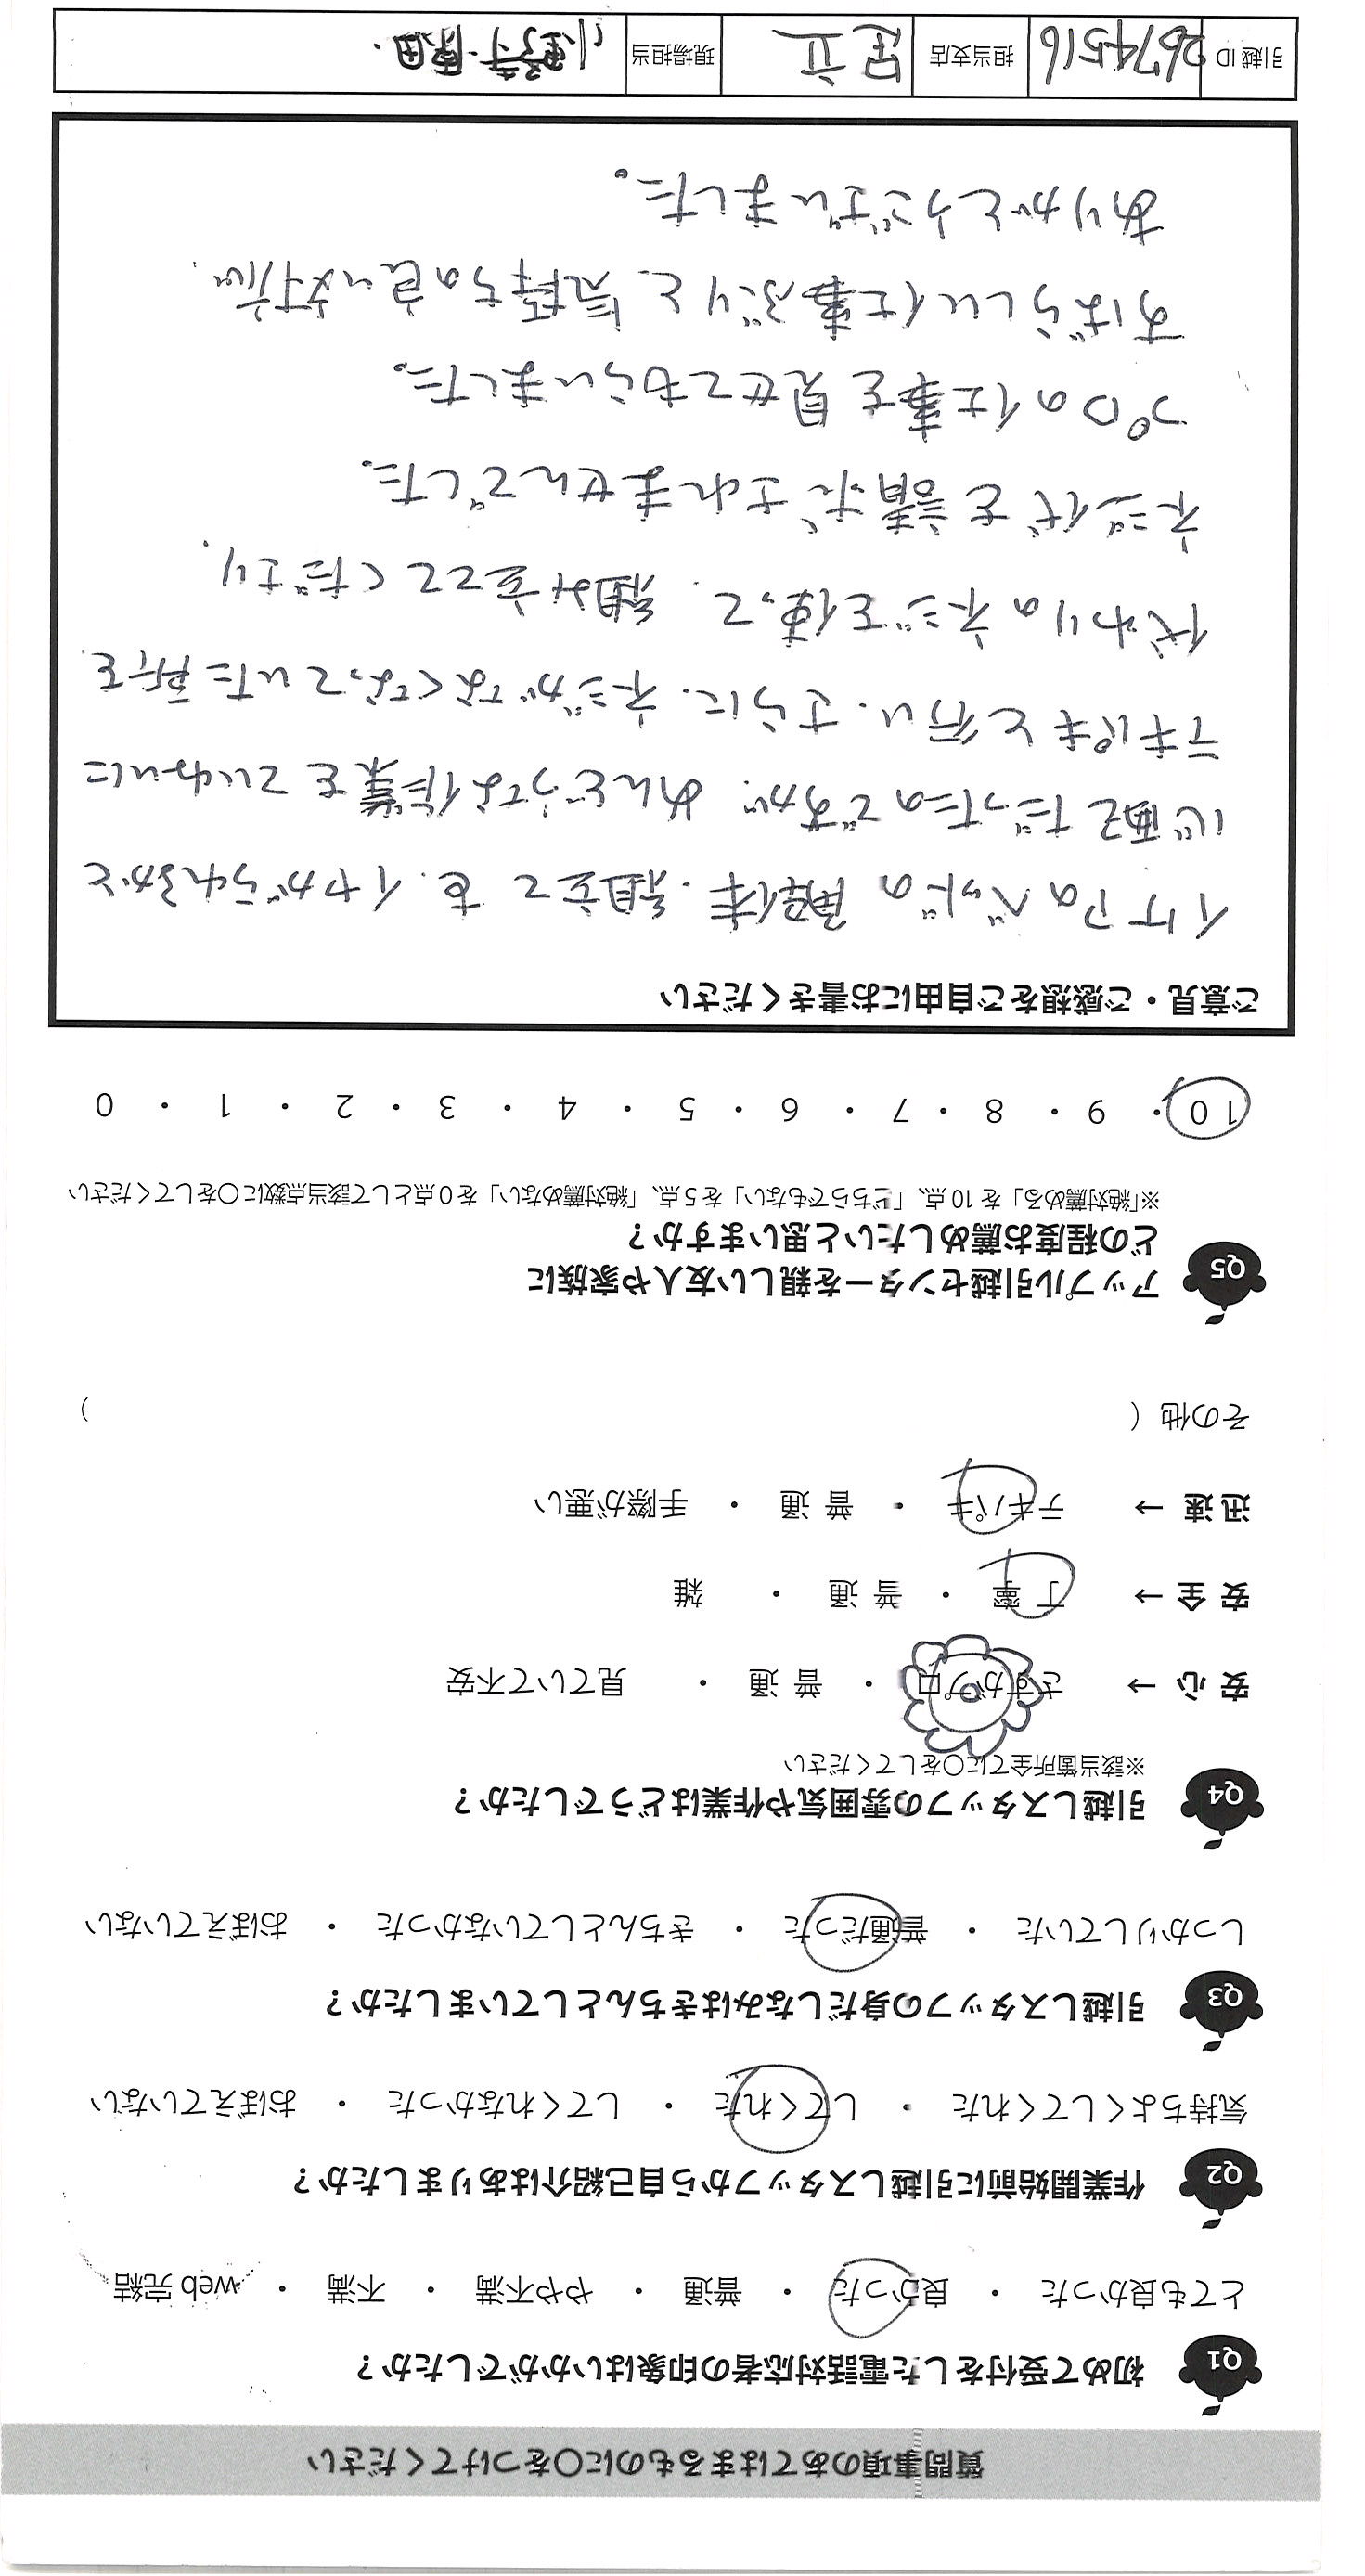 質問事項のあてはまるものに〇をつけてください
Q1 初めて受付をした電話対応者の印象はいかがでしたか？
とても良かった ・ 良かった ・ 普通 ・ やや不満 ・ 不満 ・ web 完結
Q2 作業開始前に引越しスタッフから自己紹介はありましたか？
気持ちよくしてくれた ・ してくれた ・ してくれなかった ・ おぼえていない
Q3 引越しスタッフの身だしなみはきちんとしていましたか？
しっかりしていた ・ 普通だった ・ きちんとしていなかった ・ おぼえていない
Q4 引越しスタッフの雰囲気や作業はどうでしたか？
※該当箇所全てに〇をしてください
安 心 → さすがプロ ・ 普 通 ・ 見ていて不安
安 全 → 丁 寧 ・ 普 通 ・ 雑
迅 速 → テキパキ ・ 普 通 ・ 手際が悪い
その他（ ）
Q5 アップル引越センターを親しい友人や家族に
どの程度お薦めしたいと思いますか？
※「絶対薦める」を 10 点、「どちらでもない」を 5 点、「絶対薦めない」を 0 点として該当点数に〇をしてください
10 ・ 9 ・ 8 ・ 7 ・ 6 ・ 5 ・ 4 ・ 3 ・ 2 ・ 1 ・ 0
ご意見・ご感想をご自由にお書きください
イケアのベッドの解体・組立てを、イヤがられるかと
心配だったのですが、めんどうな作業をていねいに
テキパキと行い、さらに、ネジがなくなっていた所を
代わりのネジを使って、組み立ててくださり、
ネジ代を請求されませんでした。
プロの仕事を見せてもらいました。
すばらしい仕事ぶりと、気持ちの良い対応、
ありがとうございました。
引越 ID 2674516 担当支店 足立 現場担当